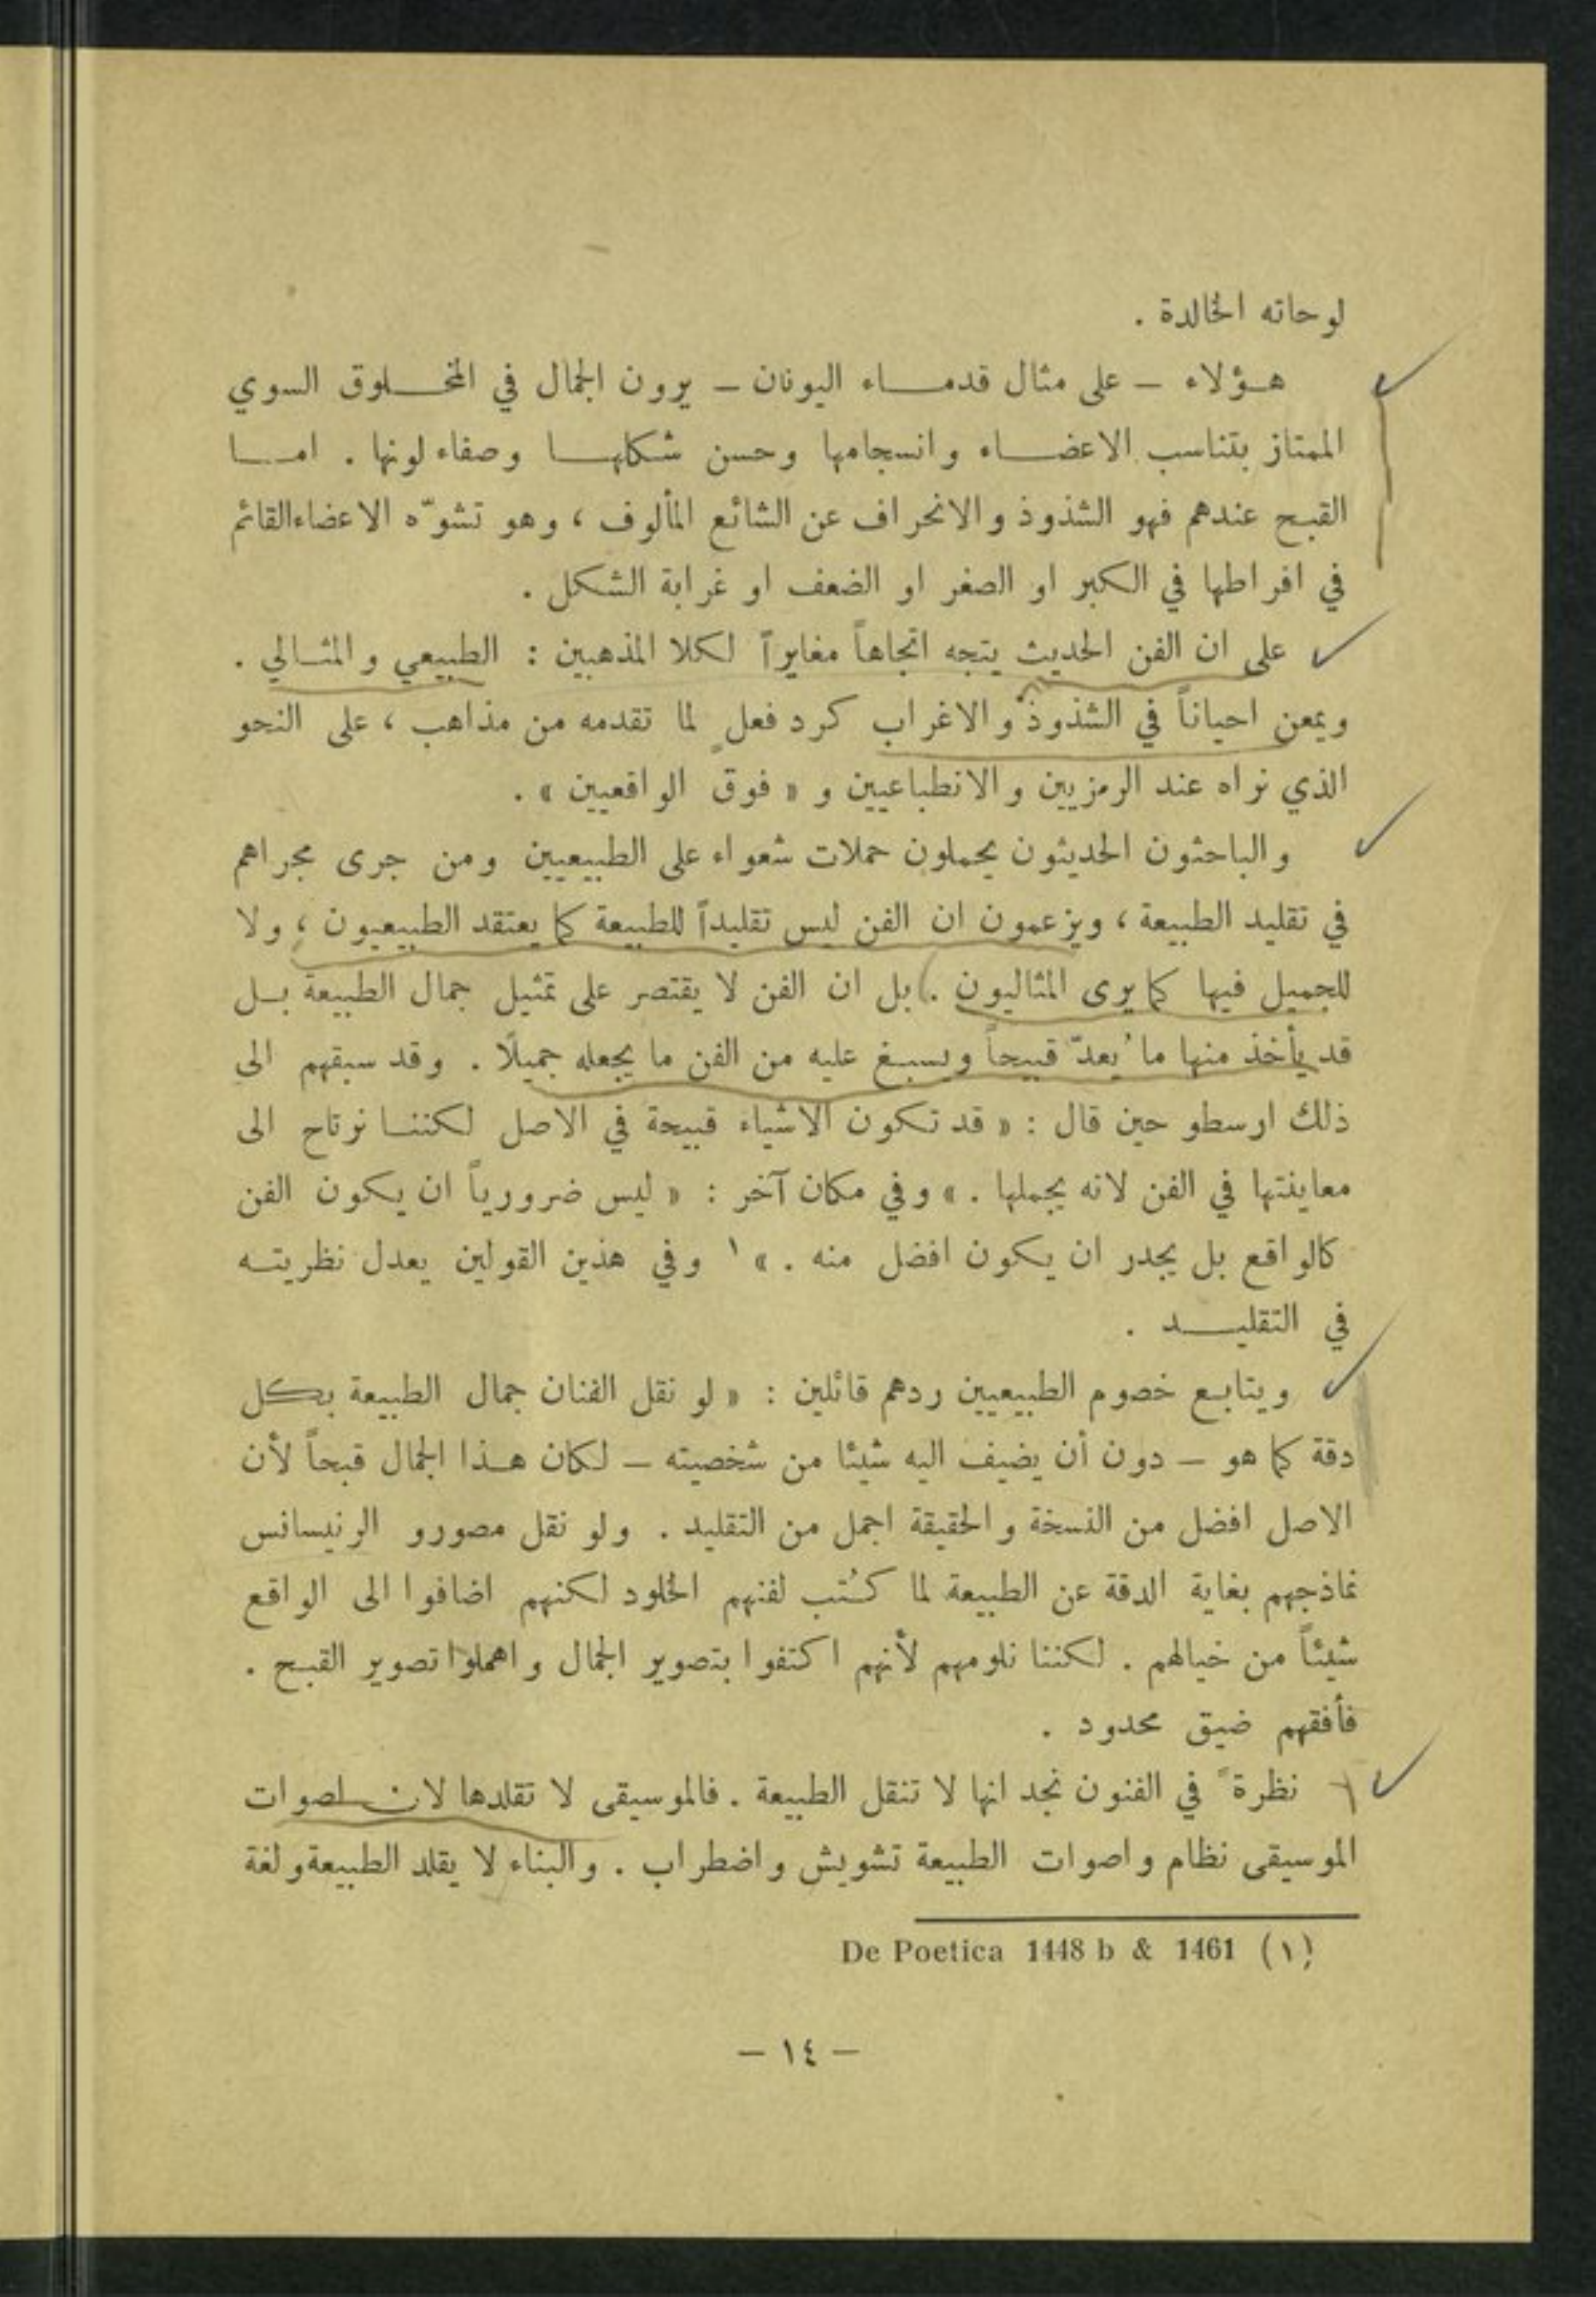 لوحاته الخالدة .
هـؤلاء – على مثال قدمـاء اليونان – يرون الجمال في المخـلوق السوي
الممتاز بتناسب الاعضـاء وانسجامها وحسن شكلهـا وصفاء لونها . امـا
القبح عندهم فهو الشذوذ والانحراف عن الشائع المألوف ، وهو تشوّه الاعضاء القائم
في افراطها في الكبر او الصغر او الضعف او غرابة الشكل .
على ان الفن الحديث يتجه اتجاهاً مغايراً لكلا المذهبين : الطبيعي والمثـالي .
ويمعن احياناً في الشذوذ والاغراب كرد فعل لما تقدمه من مذاهب ، على النحو
الذي نراه عند الرمزيين والانطباعيين و « فوق الواقعيين » .
والباحثون الحديثون يحملون حملات شعواء على الطبيعيين ومن جرى مجراهم
في تقليد الطبيعة ، ويزعمون ان الفن ليس تقليداً للطبيعة كما يعتقد الطبيعيون ، ولا
للجميل فيها كما يرى المثاليون . بل ان الفن لا يقتصر على تمثيل جمال الطبيعة بـل
قد يأخذ منها ما ُيعدّ قبيحاً ويسبغ عليه من الفن ما يجعله جميلًا . وقد سبقهم الى
ذلك ارسطو حين قال : « قد تكون الاشياء قبيحة في الاصل لكننـا نرتاح الى
معاينتها في الفن لانه يجملها . » وفي مكان آخر : « ليس ضرورياً ان يكون الفن
كالواقع بل يجدر ان يكون افضل منه . » ١ وفي هذين القولين يعدل نظريتـه
في التقليـد .
ويتابع خصوم الطبيعيين ردهم قائلين : « لو نقل الفنان جمال الطبيعة بكل
دقة كما هو – دون أن يضيف اليه شيئا من شخصيته – لكان هـذا الجمال قبحاً لأن
الاصل افضل من النسخة والحقيقة اجمل من التقليد . ولو نقل مصورو الرنيسانس
نماذجهم بغاية الدقة عن الطبيعة لما كُتب لفنهم الخلود لكنهم اضافوا الى الواقع
شيئاً من خيالهم . لكننا نلومهم لأنهم اكتفوا بتصوير الجمال واهملوا تصوير القبح .
فأفقهم ضيق محدود .
نظرة ً في الفنون نجد انها لا تنقل الطبيعة . فالموسيقى لا تقلدها لان اصوات
الموسيقى نظام واصوات الطبيعة تشويش واضطراب . والبناء لا يقلد الطبيعة ولغة
(١) De Poetica 1448 b & 1461
– ١٤ –